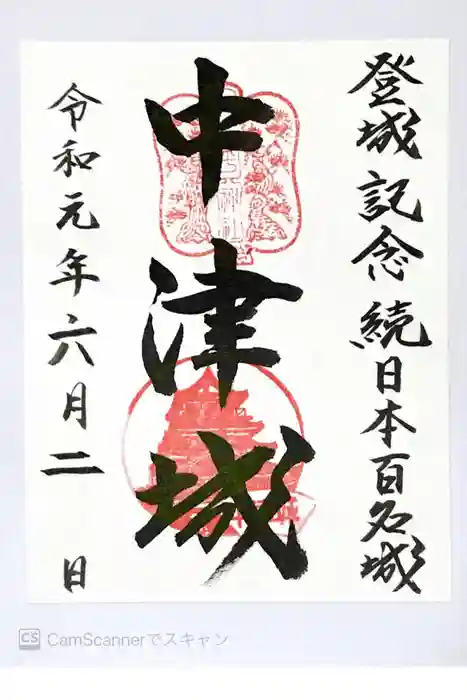 登城記念続日本百名城
中津城
令和元年六月二日
CS CamScannerでスキャン